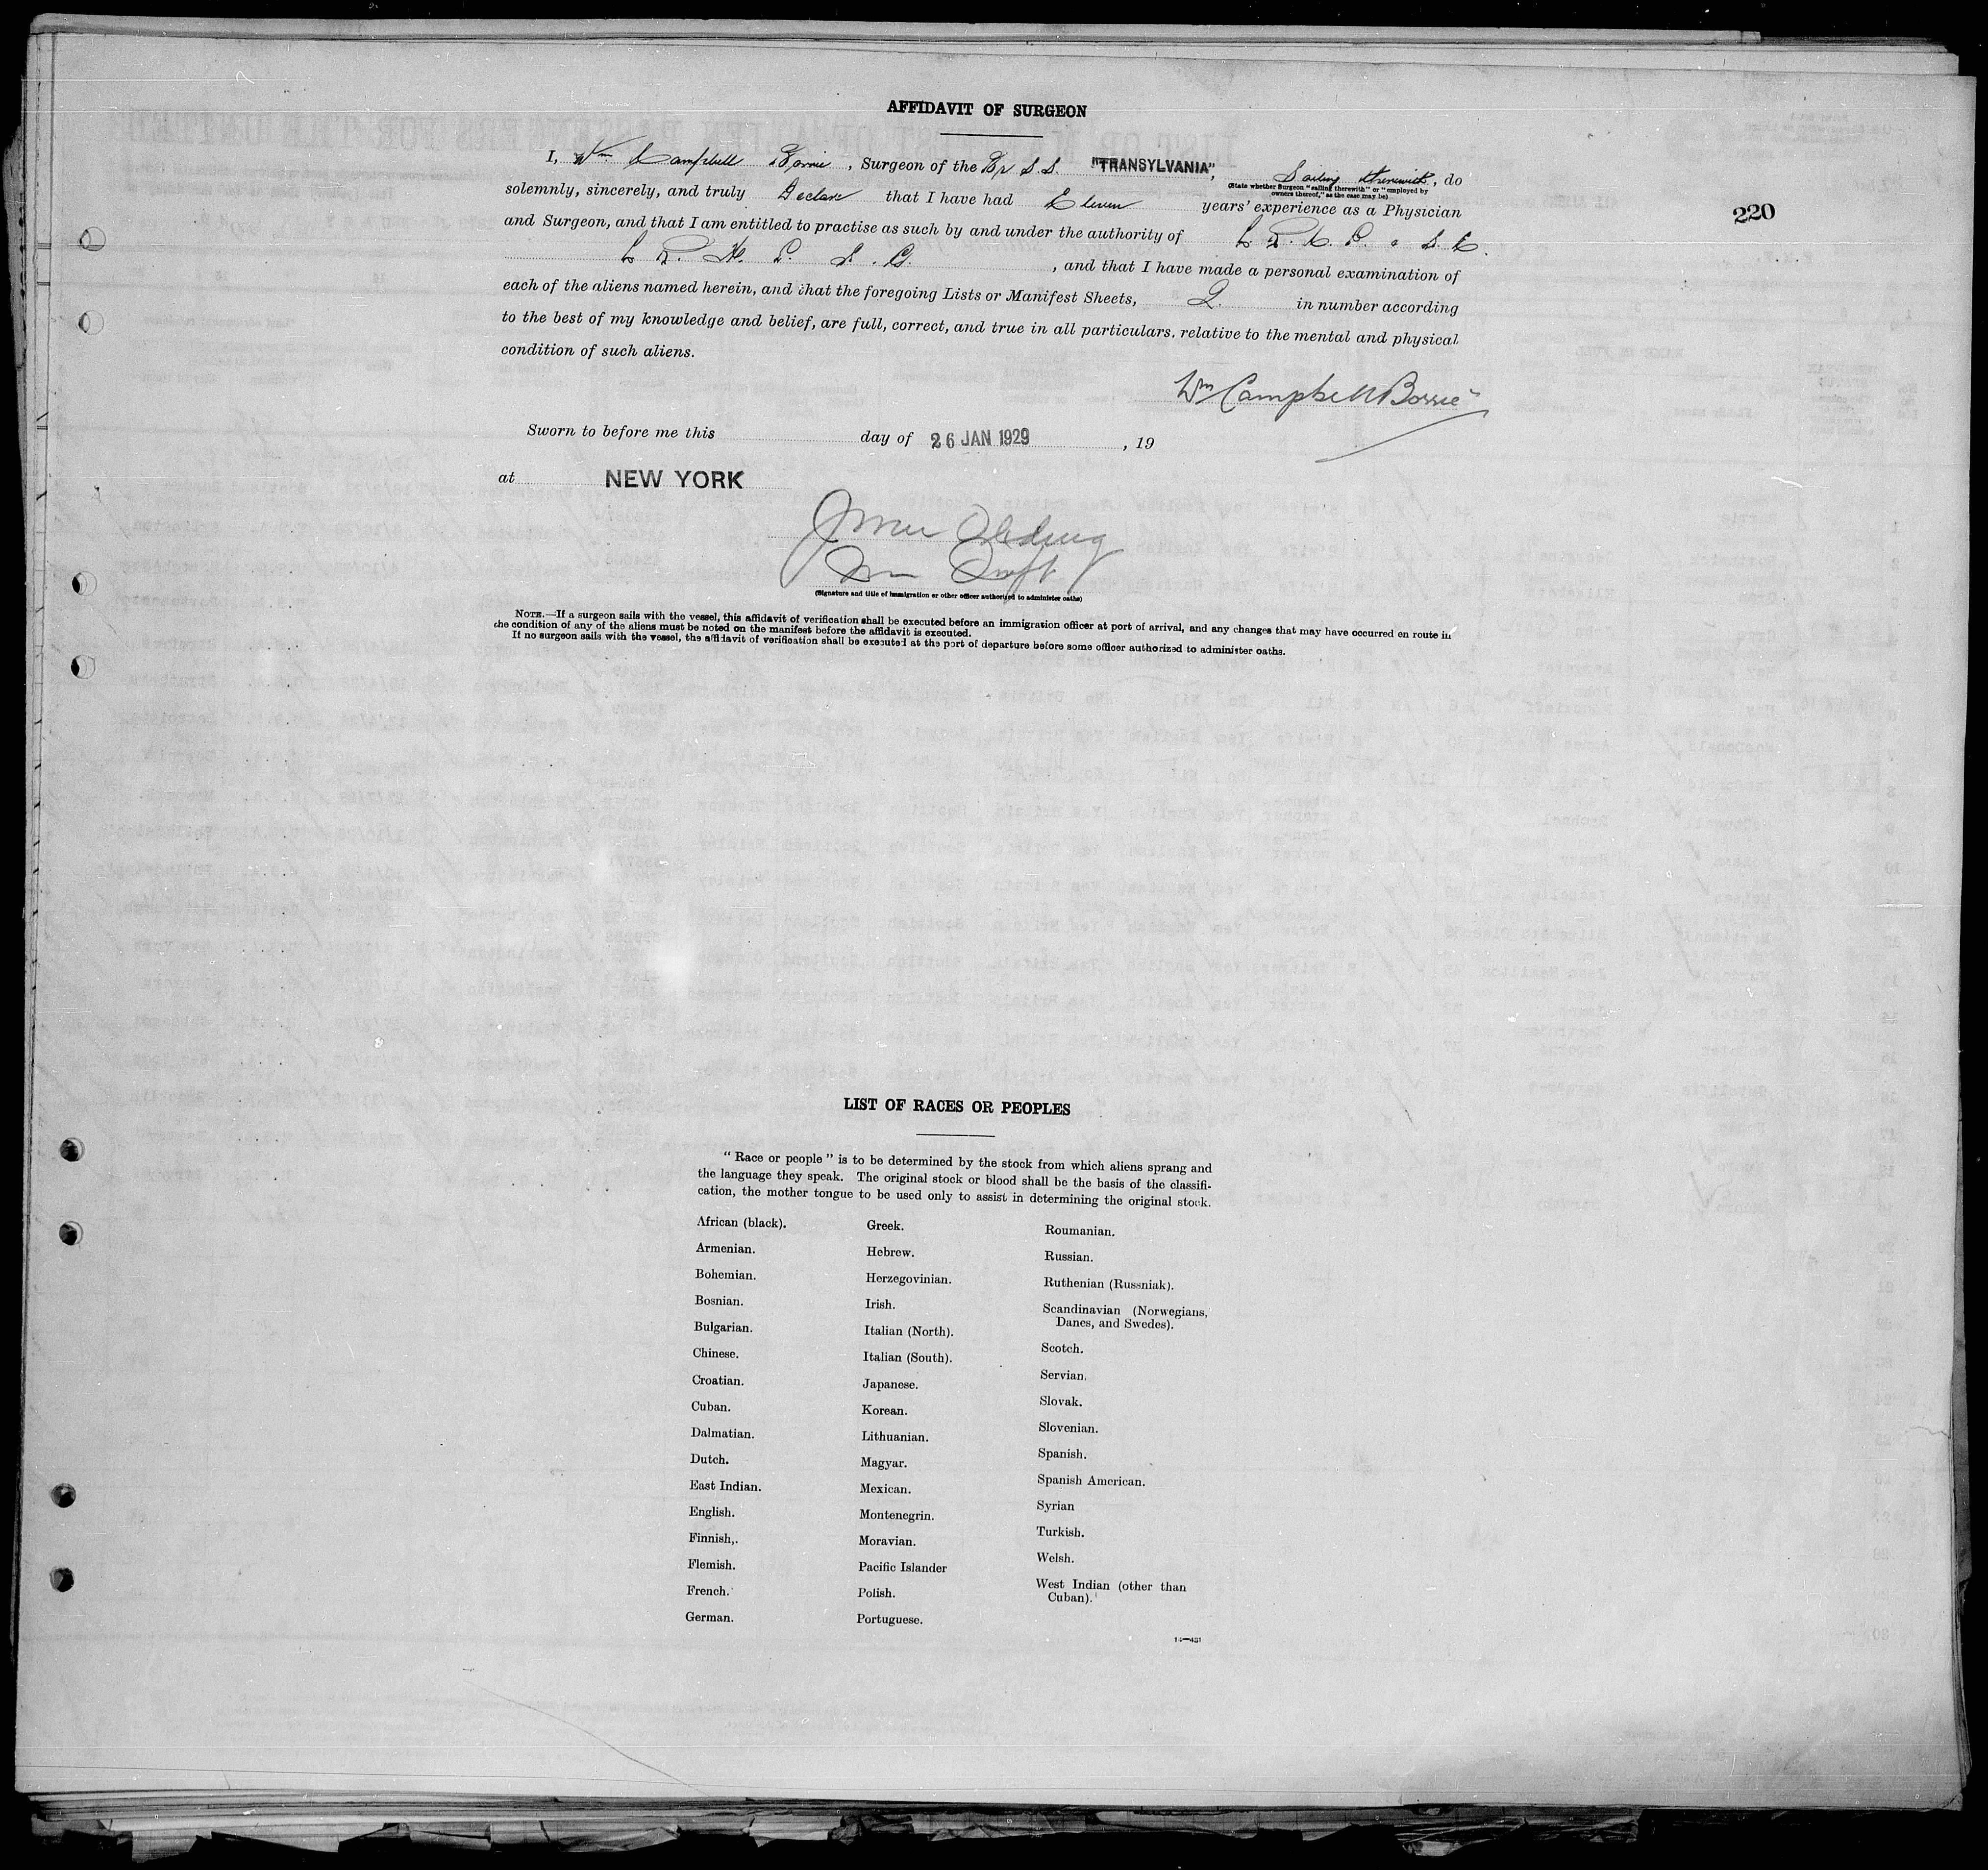 AFFIDAVIT OF SURGEON
I, Wm Campbell Borrie, Surgeon of the Br S.S. "TRANSYLVANIA", Sailing therewith, do
(State whether Surgeon "sailing therewith" or "employed by
owners thereof," as the case may be)
solemnly, sincerely, and truly Declare that I have had Eleven years' experience as a Physician
220
and Surgeon, and that I am entitled to practise as such by and under the authority of L. R. C. P. & S. E.
L R. F. P. S. G. , and that I have made a personal examination of
each of the aliens named herein, and that the foregoing Lists or Manifest Sheets, 2. in number according
to the best of my knowledge and belief, are full, correct, and true in all particulars, relative to the mental and physical
condition of such aliens.
Wm Campbell Borrie
Sworn to before me this day of 26 JAN 1929 , 19
at NEW YORK
(Signature and title of immigration or other officer authorized to administer oaths)
NOTE.—If a surgeon sails with the vessel, this affidavit of verification shall be executed before an immigration officer at port of arrival, and any changes that may have occurred en route in
the condition of any of the aliens must be noted on the manifest before the affidavit is executed.
If no surgeon sails with the vessel, the affidavit of verification shall be executed at the port of departure before some officer authorized to administer oaths.
LIST OF RACES OR PEOPLES
"Race or people" is to be determined by the stock from which aliens sprang and
the language they speak. The original stock or blood shall be the basis of the classifi-
cation, the mother tongue to be used only to assist in determining the original stock.
African (black).
Armenian.
Bohemian.
Bosnian.
Bulgarian.
Chinese.
Croatian.
Cuban.
Dalmatian.
Dutch.
East Indian.
English.
Finnish,.
Flemish.
French.
German.
Greek.
Hebrew.
Herzegovinian.
Irish.
Italian (North).
Italian (South).
Japanese.
Korean.
Lithuanian.
Magyar.
Mexican.
Montenegrin.
Moravian.
Pacific Islander
Polish.
Portuguese.
Roumanian.
Russian.
Ruthenian (Russniak).
Scandinavian (Norwegians,
Danes, and Swedes).
Scotch.
Servian.
Slovak.
Slovenian.
Spanish.
Spanish American.
Syrian
Turkish.
Welsh.
West Indian (other than
Cuban).
14—431